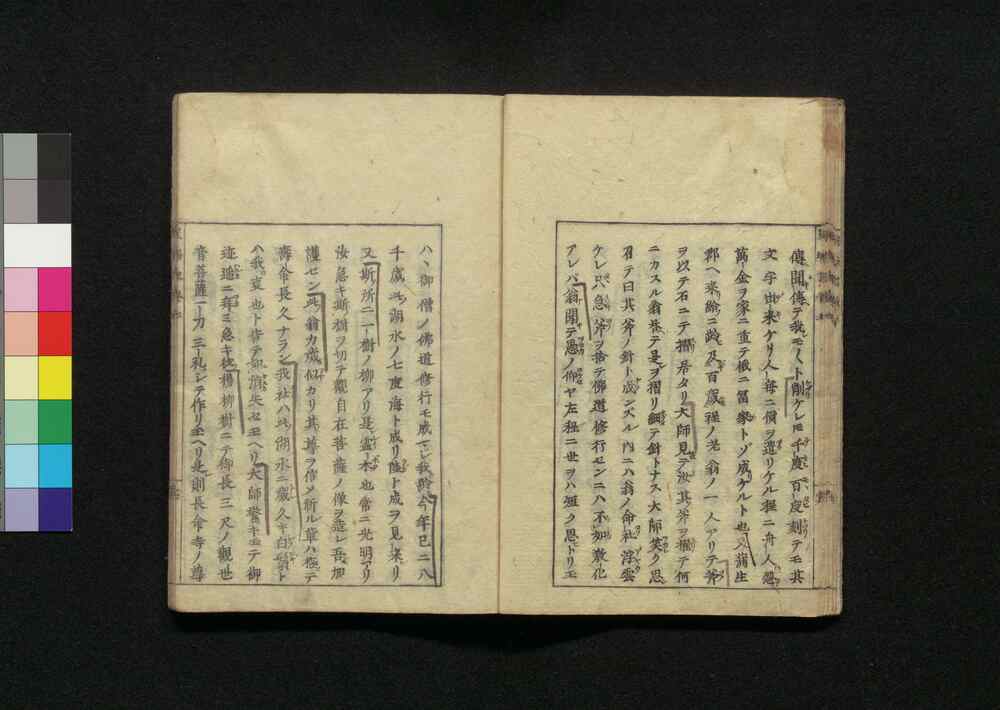 傳聞傳テ我モ〱ト削ケレ𪜈千度百度刻テモ其
文字出来ケリ人毎ニ價ヲ遣リケル程ニ舟人忽
萬金ヲ家ニ重テ榐ニ冨家トゾ成ケルト也又蒲生
郡ヘ来給ニ齢及百歳程ノ老翁ノ一人アリテ斧
ヲ以テ石ニテ摺居タリ大師見テ汝其斧ヲ摺テ何
ニカスル翁答テ是ヲ摺リ細テ針トナス大師笑ク思
召テ曰其斧ノ針ト成ンズル内ニハ翁ノ命社浮雲
ケレ只急斧ヲ捨テ佛道修行センニハ不如教化
アレバ翁聞テ愚ノ仰ヤ左程ニ世ヲハ短ク思トリモ
ハヽ御僧ノ佛道修行モ成マシ我齢今年已ニ八
千歳此湖水ノ七度海ト成リ陸ト成ヲ見来リ
又斯所ニ一樹ノ柳アリ是霊木也常ニ光明アリ
汝急キ斯樹ヲ切テ觀自在菩薩ノ像ヲ造レ吾加
護セン此翁カ歳似カリ其尊ヲ作ラメ祈ル輩ハ極テ
壽命長久ナラン我社ハ此湖水ニ歳久キ白鬚ト
ハ我夏也ト皆テ消失セ玉ヘリ大師驚キ玉テ御
迹遙ニ拜ミ急キ柊楊柳樹ニテ御長三尺ノ觀世
音菩薩一刀三礼シテ作リ玉ヘリ是則長命寺ノ尊